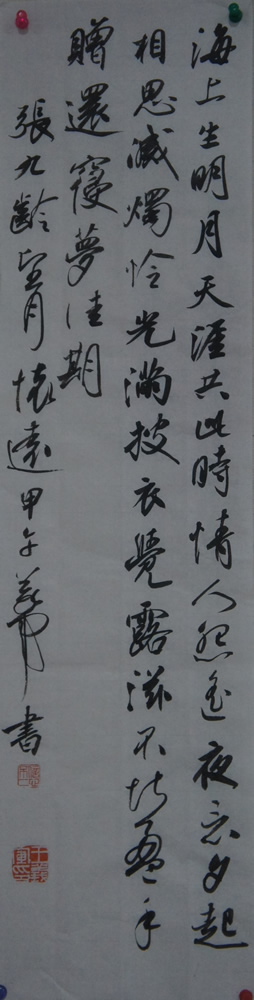 海上生明月天涯共此時情人怨遙夜竟夕起
相思滅燭怜光滿披衣覺露滋不堪盈手
贈還寢夢佳期
張九齡望月懷遠甲午書